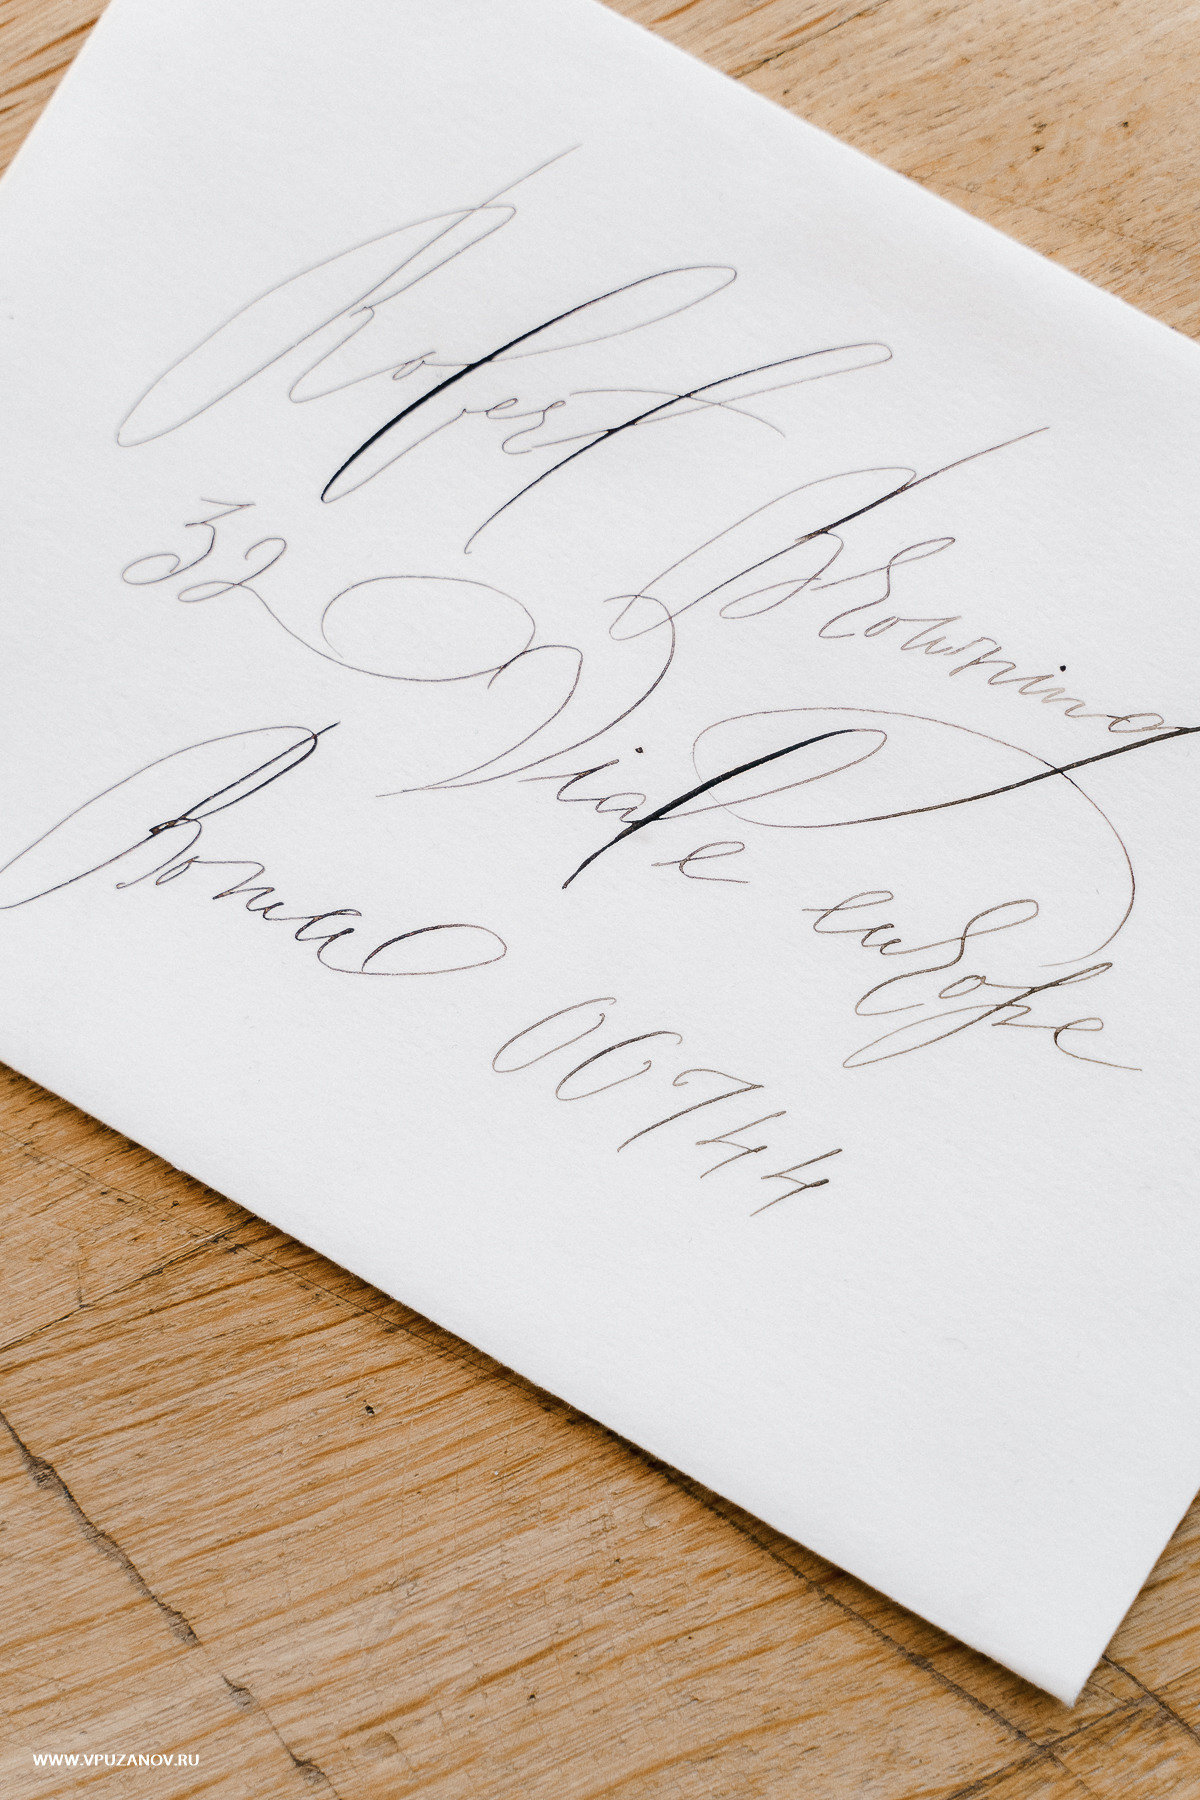 Robert Browning
32 Viale europe
Roma 00744
WWW.VPUZANOV.RU